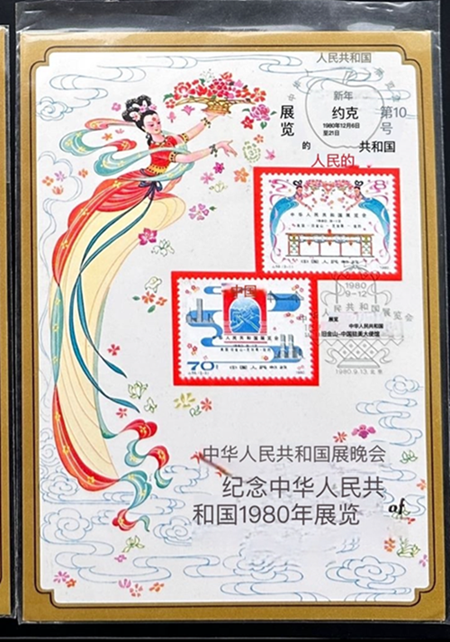 人民共和国
新年
展览
的
约克
第10
号
1980年12月6日
至21日
共和国
人民的
8
中华人民共和国展览会
中国人民邮政
中国
1980
9-12
人民共和国展览会
展览
中华人民共和国
旧金山-中国驻美大使馆
1980.9.13
人民共和国展览会
70
中国人民邮政
中华人民共和国展晚会
纪念中华人民共
和国1980年展览
of